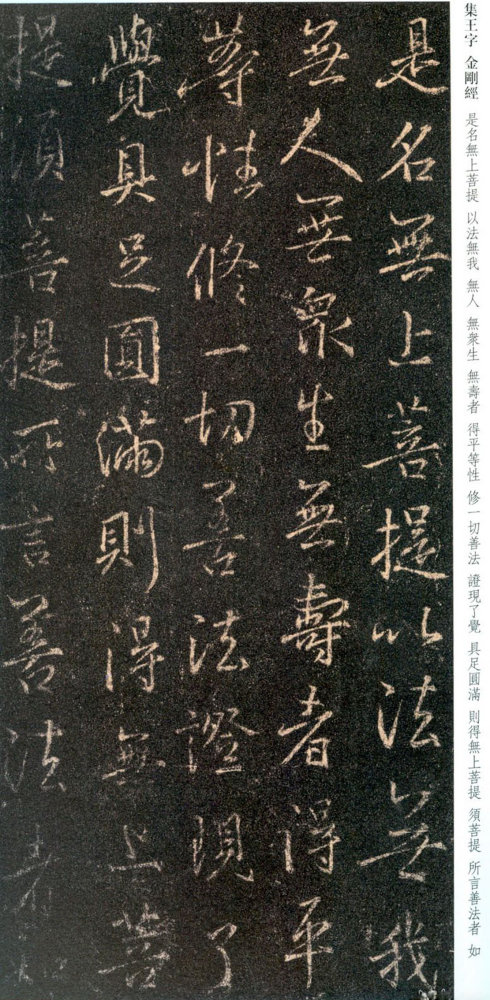 集王字 金剛經 是名無上菩提 以法無我 無人 無衆生 無壽者 得平等性 修一切善法 證現了覺 具足圓滿 則得無上菩提 須菩提 所言善法者 如
是名無上菩提以法無我
無人無衆生無壽者得平
等性修一切善法證現了
覺具足圓滿則得無上菩
提須菩提所言善法者如